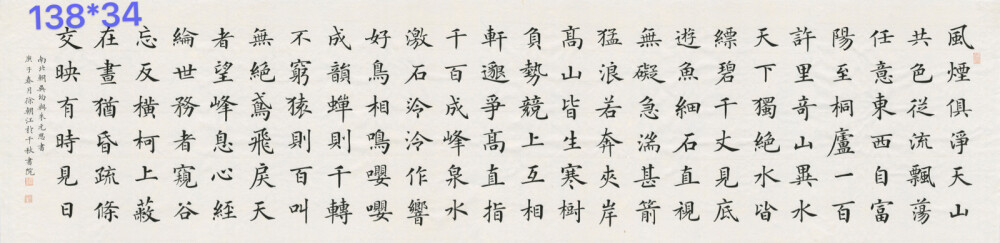 138*34
風煙俱淨天山
共色從流飄蕩
任意東西自富
陽至桐廬一百
許里奇山異水
天下獨絕水皆
縹碧千丈見底
遊魚細石直視
無礙急湍甚箭
猛浪若奔夾岸
髙山皆生寒樹
負勢競上互相
軒邈爭髙直指
千百成峰泉水
激石泠泠作響
好鳥相鳴嚶嚶
成韻蟬則千轉
不窮猿則百叫
無絕鳶飛戾天
者望峰息心經
綸世務者窺谷
忘反橫柯上蔽
在晝猶昏疏條
交映有時見日
南北朝吳均與朱元思書
庚子春月徐朝江於千秋書院